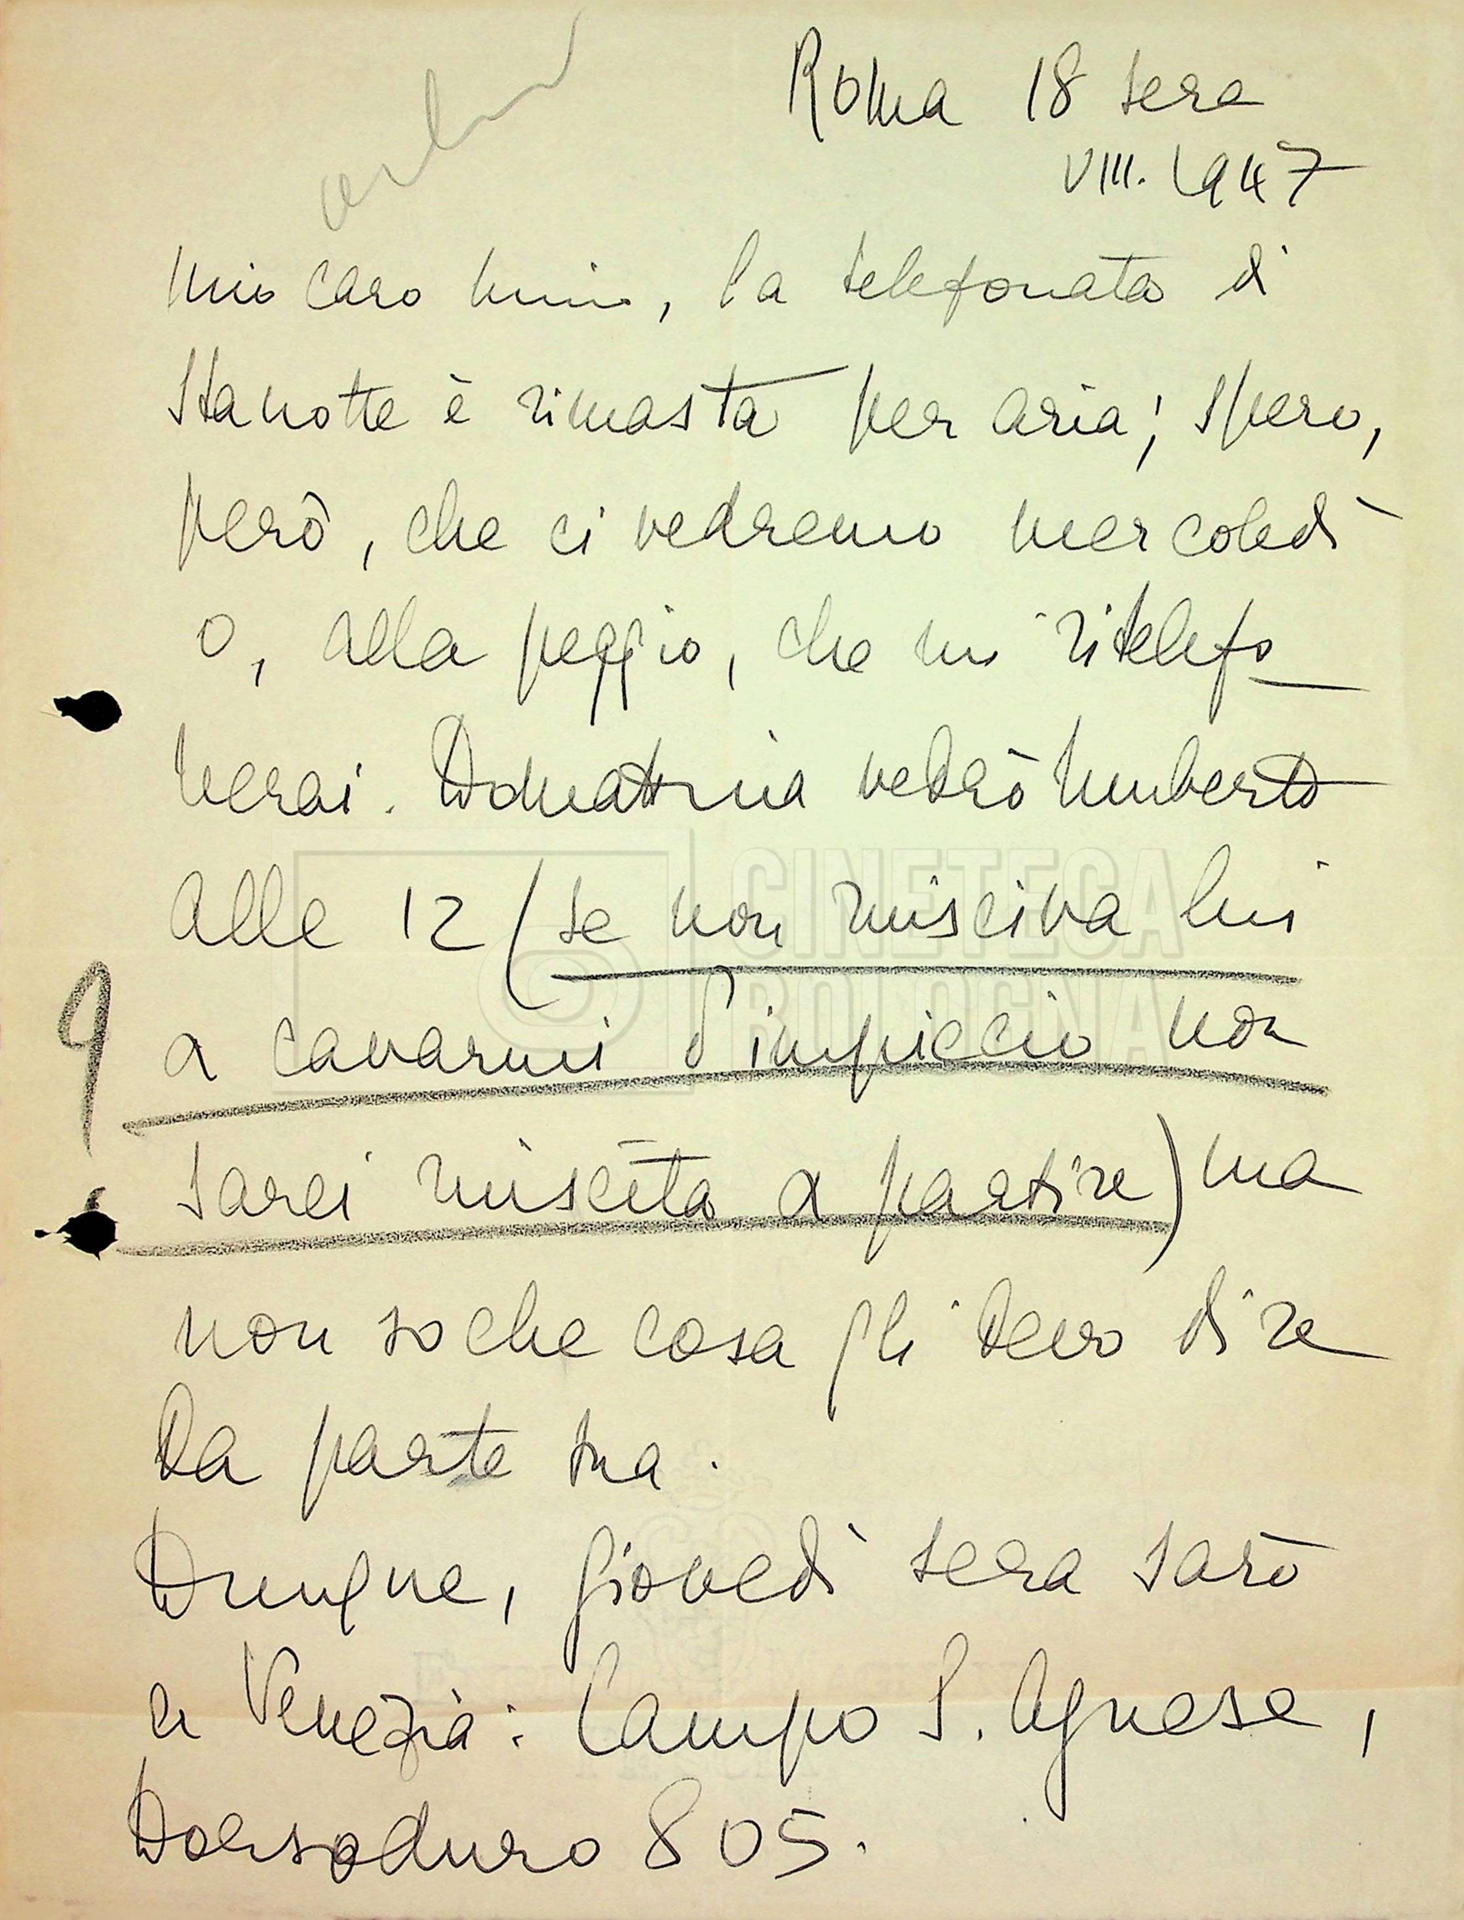 Roma 18 sera
VIII. 1947
Mio caro Mino, la telefonata di
stanotte è rimasta per aria; spero,
però, che ci vedremo mercoledì
o, alla peggio, che mi ritelefo
nerai. Domattina vedrò Umberto
alle 12 (se non riusciva lui
a cavarmi d'impiccio non
sarei riuscita a partire) ma
non so che cosa gli devo dire
da parte tua.
Dunque, giovedì sera sarò
a Venezia: Campo S. Agnese,
Dorsoduro 805.
CINETECA
BOLOGNA